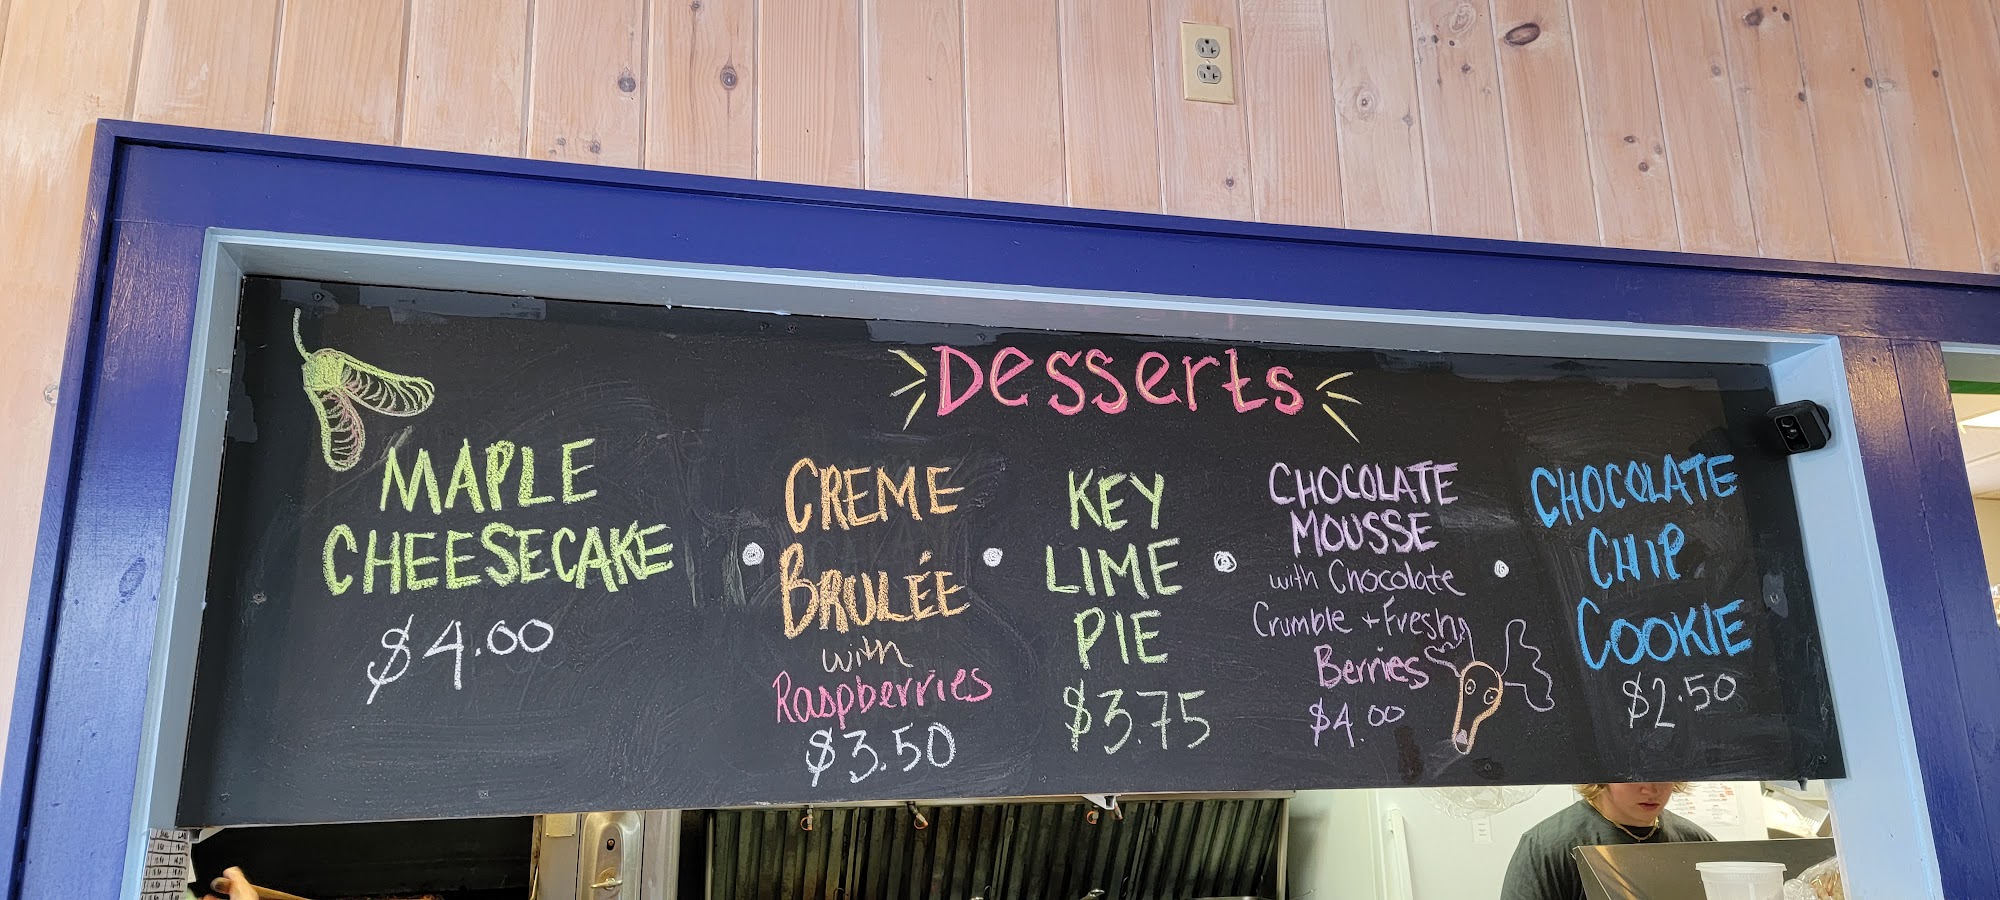 Desserts
MAPLE
CHEESECAKE
$4.00
CREME
BRULÉE
with
Raspberries
$3.50
KEY
LIME
PIE
$3.75
CHOCOLATE
MOUSSE
with Chocolate
Crumble + Fresh
Berries
$4.00
CHOCOLATE
CHIP
COOKIE
$2.50